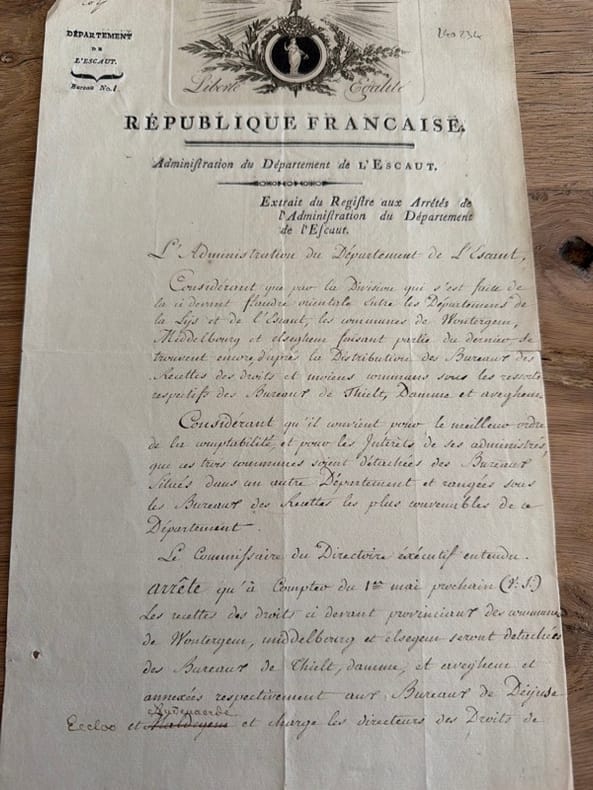 DÉPARTEMENT
DE
L'ESCAUT.
Bureau No. 1.
240 234
Liberté Egalité
RÉPUBLIQUE FRANCAISE.
Adminiſtration du Département de L'ESCAUT.
Extrait du Regiſtre aux Arrétés de
l'Adminiſtration du Département
de l'Eſcaut.
L'Administration du Département de L'Escaut,
Considérant que par la Division qui s'est faite de
la ci devant flandre orientale Entre les Départemens de
la Lijs et de l'Escaut, les communes de Wontergem,
Middelbourg et elseghem faisant partie du dernier, se
trouvent encore d'après la Distribution des Bureaux des
Recettes des droits et moiens communs sous les ressorts
respectifs des Bureaux de Thielt, Damme et aveghem.
Considérant qu'il convient pour le meilleur ordre
de la comptabilité, et pour les Interêts de ses administrés,
que ces trois communes soient détachées des Bureaux
situés dans un autre Département et rangées sous
les Bureaux des Recettes les plus convenables de ce
Département.
Le Commissaire du Directoire éxécutif entendu.
arrête qu'à Compter du 1er mai prochain (V. S.)
Les recettes des droits ci devant provinciaux des communes
de Wontergem, middelbourg et elsegem seront detachées
des Bureaux de Thielt, damme, et aveghem et
annexées respectivement aux Bureaux de Deijnse
Audenaerde
Eecloo et Maldegem et charge les directeurs des Droits de